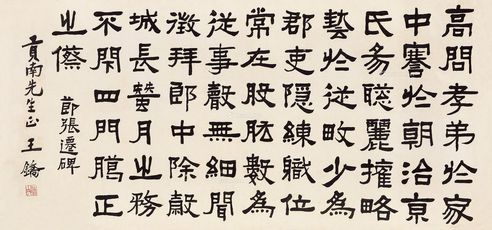 高問孝弟於家
中謇於朝治京
氏易聰麗權略
藝於從畋少為
郡吏隱練職位
常在股肱數為
從事聲無細聞
徵拜郎中除穀
城長蠶月之務
不閉四門臘正
之僚
節張遷碑
貢南先生正 王